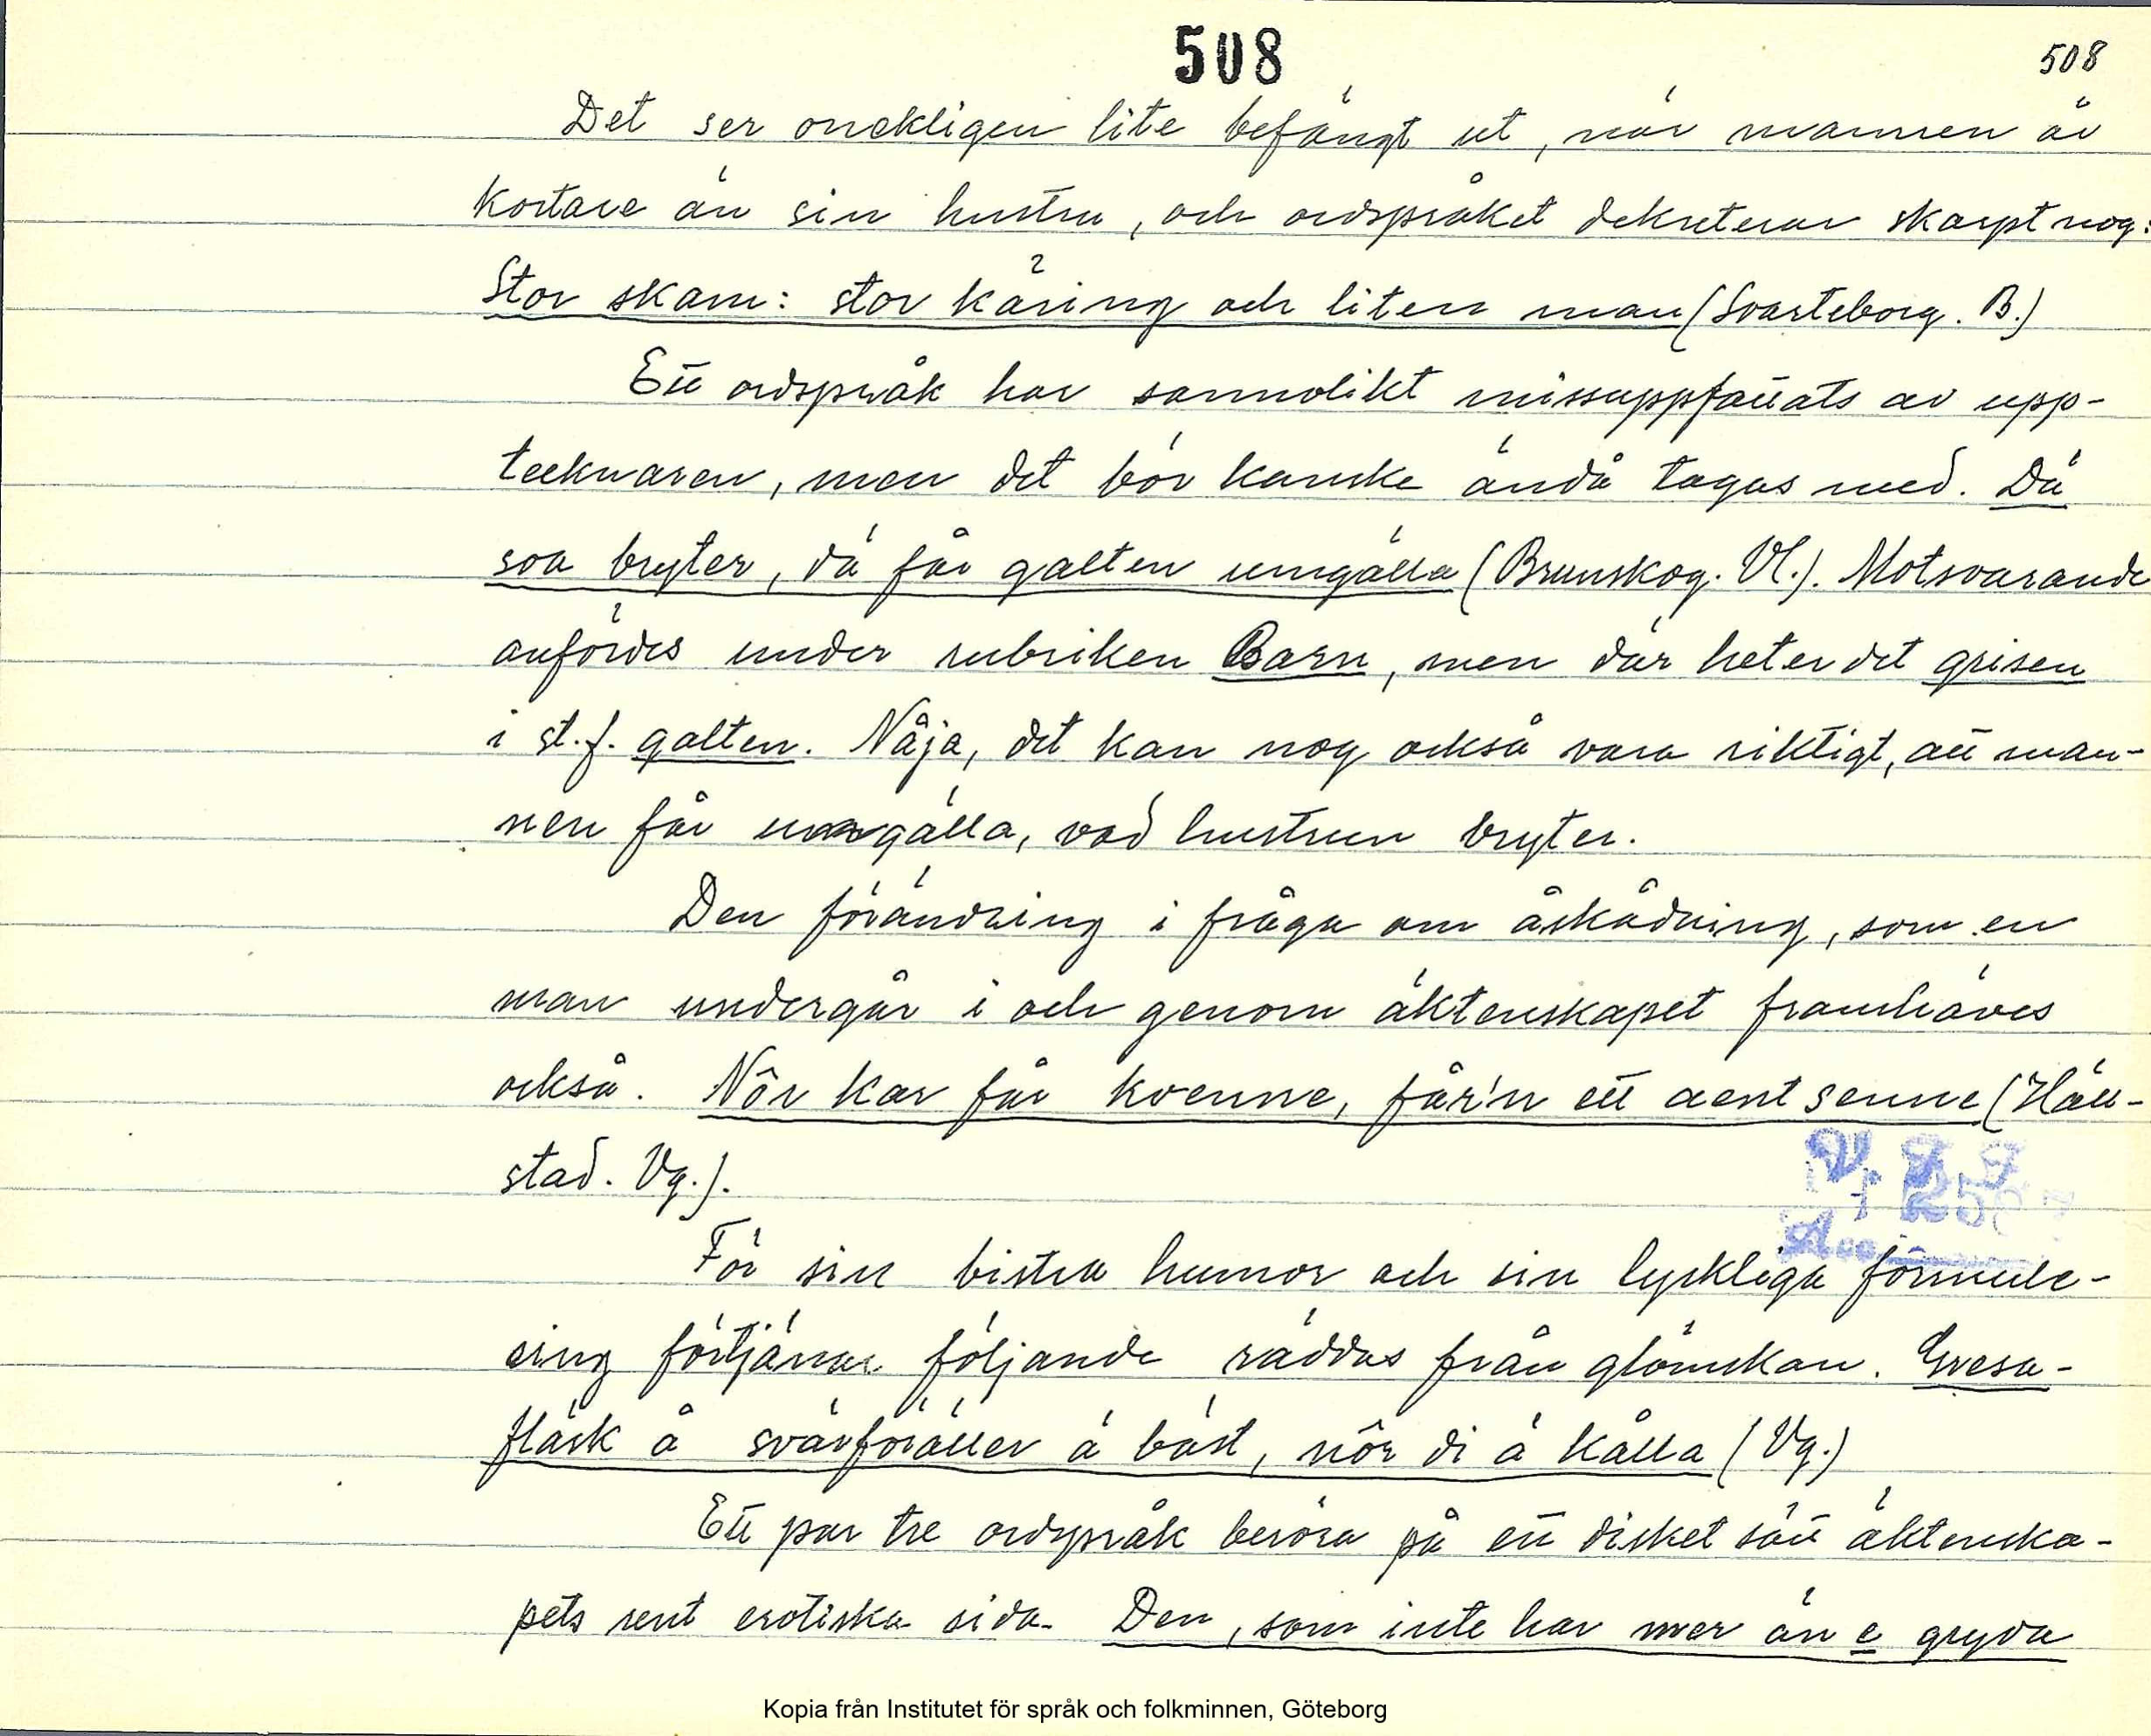 508
508
Det ser onekligen lite befängt ut, när mannen är
kortare än sin hustru, och ordspråket dekreterar skarpt nog:
Stor skam: stor käring och liten man (Svarteborg. B.)
Ett ordspråk har sannolikt missuppfattats av upp-
tecknaren, men det bör kanske ändå tagas med. Då
soa bryter, då får galten umgälla (Brunskog. Vl.). Motsvarande
anfördes under rubriken Barn, men där heter det grisen
i st.f. galten. Nåja, det kan nog också vara riktigt, att man-
nen får umgälla, vad hustrun bryter.
Den förändring i fråga om åskådning, som en
man undergår i och genom äktenskapet framhäves
också. Nôr kar får kvenne, får'n ett aent senne (Häll-
stad. Vg.).
För sin bistra humor och sin lyckliga formule-
ring förtjänar följande räddas från glömskan. Gresa-
fläsk å svärföräller ä bäst, nôr di ä kålla (Vg.)
Ett par tre ordspråk beröra på ett diskret sätt äktenska-
pets rent erotiska sida. Den, som inte har mer än e gryda
Kopia från Institutet för språk och folkminnen, Göteborg